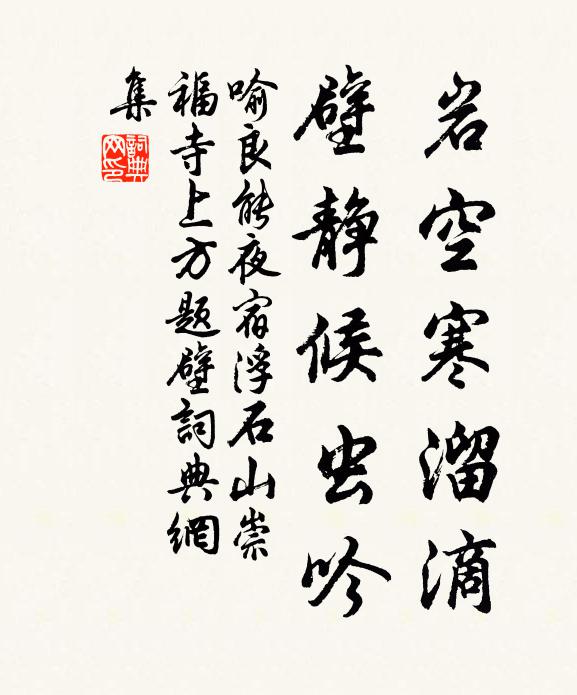 岩空寒溜滴
壁静候虫吟
喻良能夜宿浮石山崇
福寺上方题壁詞典網
集
詞典
网印